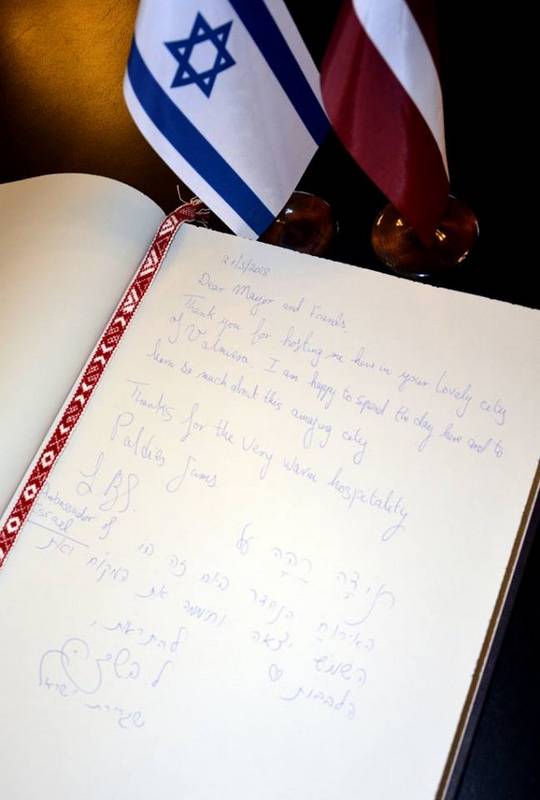 21/3/2018
Dear Mayor and Friends.
Thank you for hosting me here in your lovely city
of Valmiera. I am happy to spend the day here and to
learn so much about this amazing city
Thanks for the very warm hospitality
Paldies Jums
Ambassador of
Israel
תודה רבה על
האירוח הנהדר ביום זה בו
השמש יצאה וחיממה את המקום ואת
הלבבות ♡ להתראות,
שגרירת ישראל